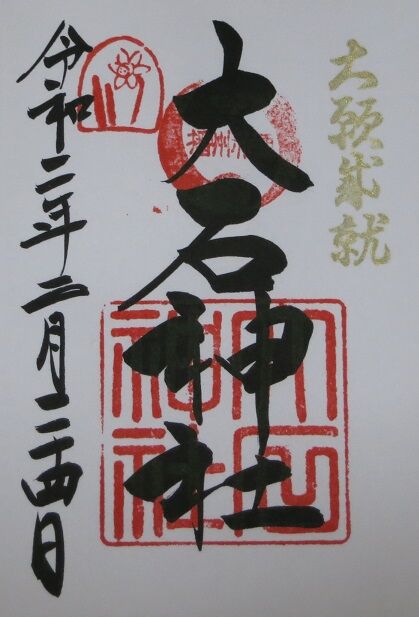 大願成就
播州赤穂
大石神社
大石神社
令和二年二月二十四日